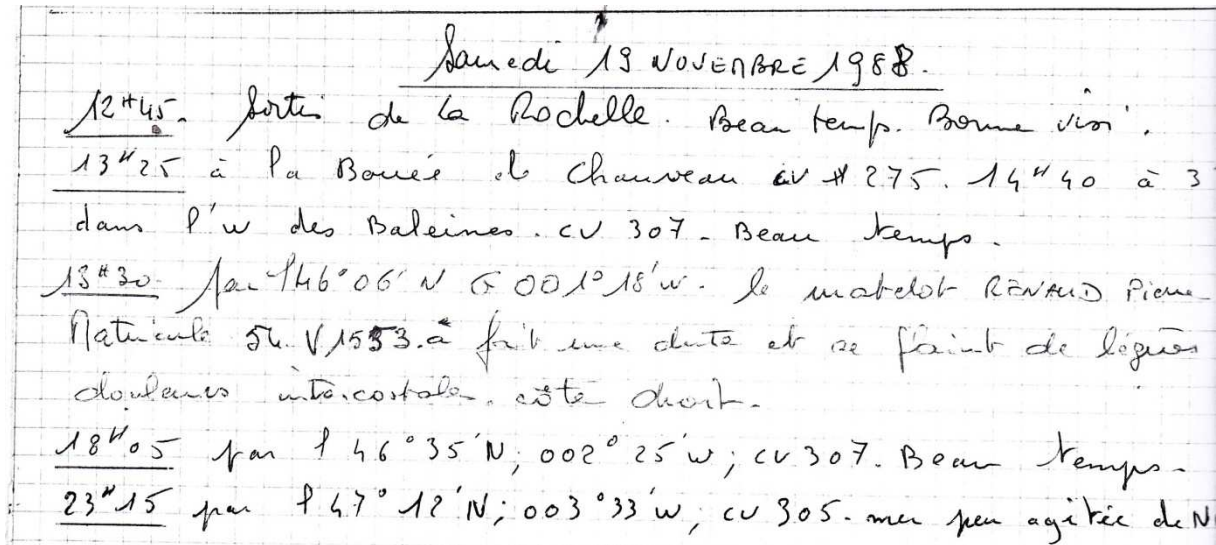 Samedi 19 NOVEMBRE 1988.
12H45. Sortie de la Rochelle. Beau temps. Bonne visi.
13H25 à la Bouée de Chauveau CV # 275. 14H40 à 3
dans l'W des Baleines. CV 307. Beau temps.
13H30. par l 46° 06' N G 001° 18' W. le matelot RENAUD Pierre
Matricule 54. V 1553. a fait une chute et se plaint de légères
douleurs intercostales. côté droit.
18H05 par l 46° 35' N; 002° 25' W; CV 307. Beau temps.
23H15 par l 47° 12' N; 003° 33' W; CV 305. mer peu agitée de N